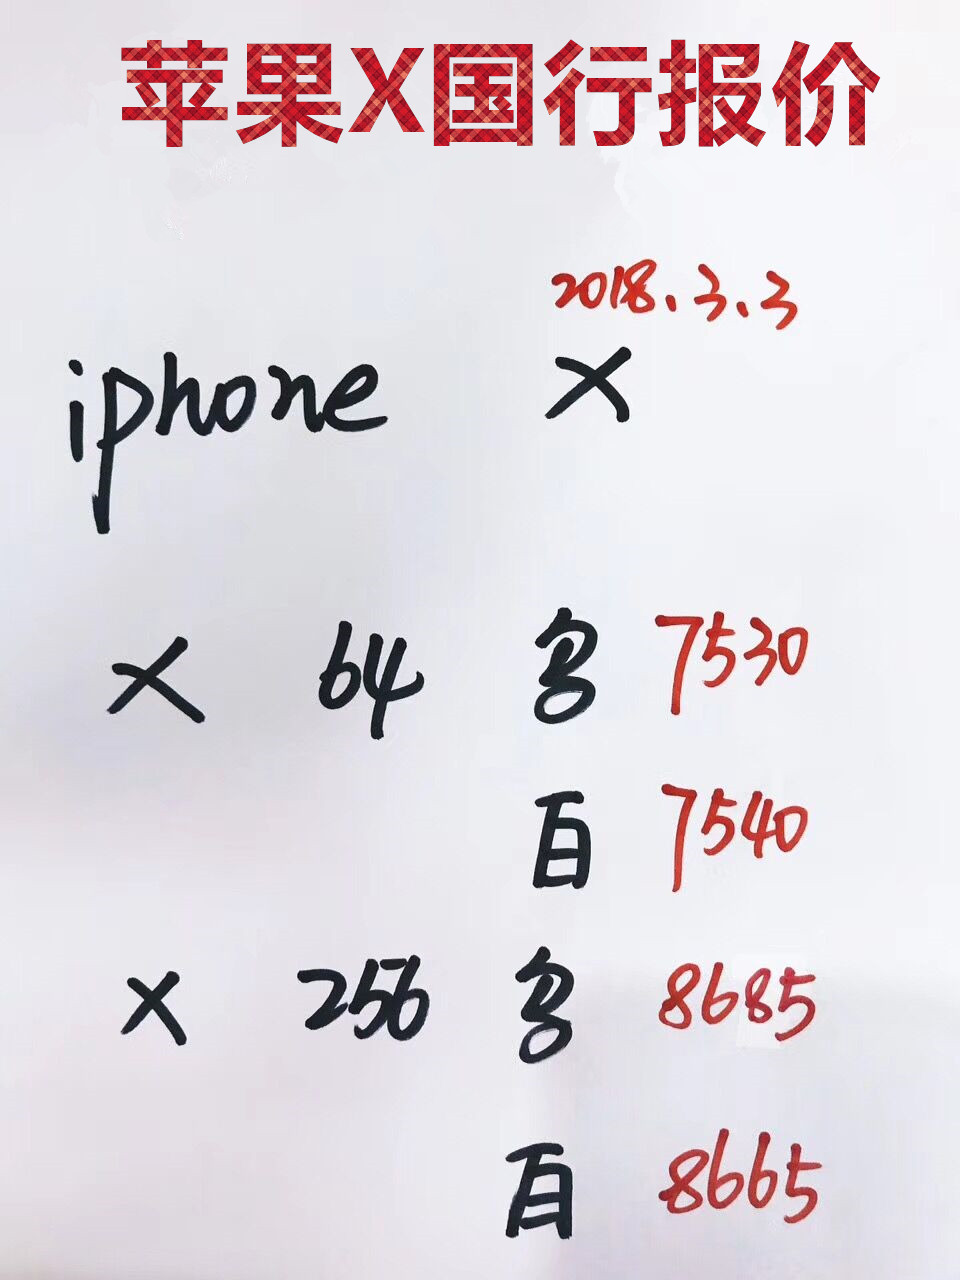 苹果X国行报价
2018.3.3
iphone X
X 64 7530
百 7540
X 256 8685
百 8665